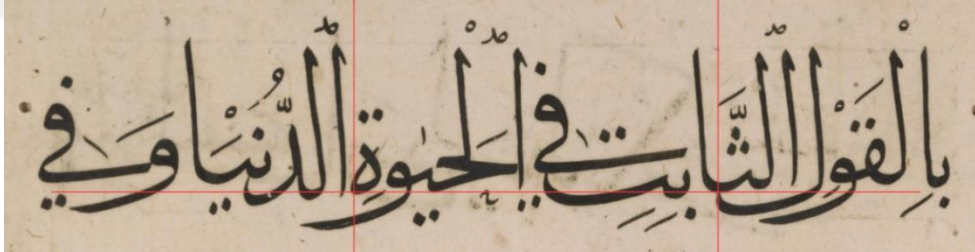 بِالْقَوْلِ الثَّابِتِ فِي الْحَيٰوةِ الدُّنْيَا وَفِي